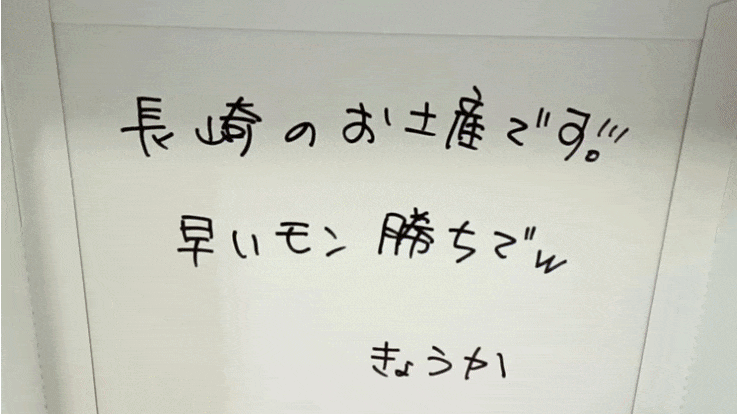 長崎のお土産です!!!
早いモン勝ちでw
きょうか